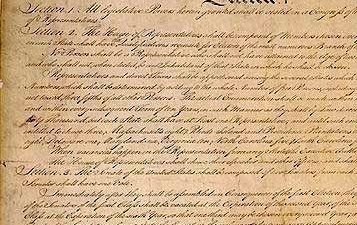 Section. 1. All legislative Powers herein granted shall be vested in a Congress of
of Representatives.
Section. 2. The House of Representatives shall be composed of Members chosen every
in each State shall have Qualifications requisite for Electors of the most numerous Branch of
No Person shall be a Representative who shall not have attained to the Age of
and who shall not, when elected, be an Inhabitant of that State in which he shall be chosen.
Representatives and direct Taxes shall be apportioned among the several
Numbers, which shall be determined by adding to the whole Number of free Persons,
not taxed, three fifths of all other Persons. The actual Enumeration shall be made within
and within every subsequent Term of ten Years, in such Manner as they shall
thirty Thousand, but each State shall have at Least one Representative; and until such
entitled to chuse three, Massachusetts eight, Rhode Island and Providence Plantations
eight, Delaware one, Maryland six, Virginia ten, North Carolina five, South Carolina
When vacancies happen in the Representation from any State, the Executive
The House of Representatives shall chuse their
Section. 3. The Senate of the United States shall be composed of two Senators from each
Senator shall have one Vote.
Immediately after they shall be assembled in Consequence of the first Election,
of the Senators of the first Class shall be vacated at the Expiration of the second Year, of
Class at the Expiration of the sixth Year, so that one third may be chosen every second Year;